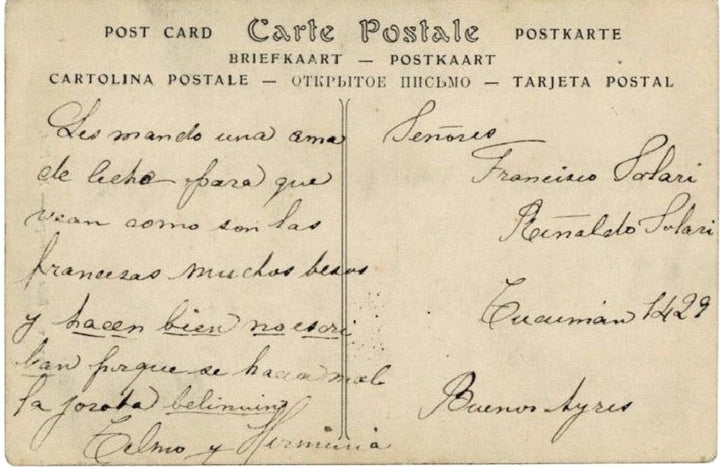 POST CARD Carte Postale POSTKARTE
BRIEFKAART — POSTKAART
CARTOLINA POSTALE — ОТКРЫТОЕ ПИСЬМО — TARJETA POSTAL
Les mando una ama
de leche para que
vean como son las
francezas muchos besos
y hacen bien no escri
ban porque se hacia mal
la
Telmo y Herminia
Señores
Francisco Solari
Reinaldo Solari
Tucumán 1429
Buenos Ayres